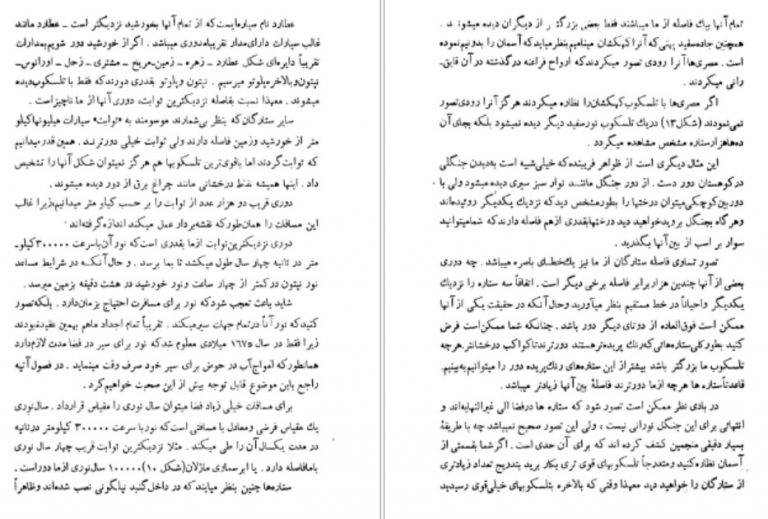 عطارد نام سیاره‌ایست که از تمام آنها بخورشید نزدیکتر است – عطارد مانند
غالب سیارات دارای مدار تقریباً مدوری میباشد . اگر از خورشید دور شویم بمدارات
تقریباً دایره‌ای شکل عطارد – زهره – زمین – مریخ – مشتری – زحل – اورانوس –
نپتون و بالاخره پلوتو میرسیم . نپتون و پلوتو بقدری دورند که فقط با تلسکوپ دیده
میشوند . معهذا نسبت بفاصله نزدیکترین ثوابت، دوری آنها از ما ناچیز است .
سایر ستارگان که بنظر بی‌شمارند موسومند به «ثوابت» سیارات میلیونها کیلو
متر از خورشید و زمین فاصله دارند ولی ثوابت خیلی دورترند . همین قدر میدانیم
که ثوابت گردند اما با قوی‌ترین تلسکوپها هم هرگز نمیتوان شکل آنها را تشخیص
داد . اینها همیشه نقط درخشانی مانند چراغ برق از دور دیده میشوند .
دوری قریب دو هزار عدد از ثوابت را بر حسب کیلو متر میدانیم زیرا غالب
این مسافات را همان‌طور که نقشه‌بردار عمل میکند اندازه گرفته‌اند
دوری نزدیکترین ثوابت از ما بقدری است که نور آن با سرعت ۳۰۰۰۰۰ کیلو-
متر در ثانیه چهار سال طول میکشد تا بما برسد . و حال آنکه در شرایط مساعد
نور نپتون در کمتر از چهار ساعت و نور خورشید در هشت دقیقه بزمین میرسد.
شاید باعث تعجب شود که نور برای مسافرت احتیاج بزمان دارد . بلکه تصور
کنید که نور آناً در تمام جهات سیر میکند . تقریباً تمام اجداد ماهم بهمین عقیده بودند
زیرا فقط در سال ۱۶۷۵ میلادی معلوم شد که نور برای سیر در فضا مدت لازم دارد
همانطور که امواج آب در حوض برای سیر خود صرف وقت مینماید . در فصول آتیه
راجع باین موضوع قابل توجه بیش از این صحبت خواهیم کرد .
برای مسافات خیلی زیاد فضا میتوان سال نوری را مقیاس قرارداد . سال نوری
یك مقیاس فرضی و معادل با مسافتی است که نور با سرعت ۳۰۰۰۰۰ کیلومتر در ثانیه
در مدت یکسال آن را طی میکند . مثلا نزدیکترین ثوابت قریب چهار سال نوری
با ما فاصله دارد . یا ابر سماوی ماژلان (شکل ۱۰) ۱۰۰۰۰۰ سال نوری از ما دور است .
ستاره‌ها چنین بنظر میایند که در داخل گنبد نیلگونی نصب شده‌اند و ظاهراً
تمام آنها بیك فاصله از ما میباشند فقط بعضی بزرگتر از دیگران دیده میشوند .
همچنین جاده سفید پهنی که آنرا کهکشان مینامیم بنظر میاید که آسمان را بدو نیم نموده
است . مصری‌ها آنرا رودی تصور میکردند که ارواح فراعنه درگذشته در آن قایق-
رانی میکردند .
اگر مصری‌ها با تلسکوپ کهکشان را نظاره میکردند هرگز آنرا رودی تصور
نمی‌نمودند (شکل ۱۳) در یك تلسکوپ نور سفید دیگر دیده نمیشود بلکه بجای آن
ده‌ها هزار ستاره مشخص مشاهده میگردد .
این مثال دیگری است از ظواهر فریبنده که خیلی شبیه است به دیدن جنگلی
در کوهستان دور دست . از دور جنگل مانند نوار سبز سیری دیده میشود ولی با
دوربین کوچکی میتوان درختها را بطور مشخص دید که نزدیك یکدیگر روئیده‌اند
و هرگاه بجنگل بروید خواهید دید درختها بقدری از هم فاصله دارند که شما میتوانید
سوار بر اسب از بین آنها بگذرید .
تصور تساوی فاصله ستارگان از ما نیز یك خطای باصره میباشد . چه دوری
بعضی از آنها چندین هزار برابر فاصله برخی دیگر است . اتفاقاً سه ستاره را نزدیك
یکدیگر و احیاناً در خط مستقیم بنظر میاورید و حال آنکه در حقیقت یکی از آنها
ممکن است فوق‌العاده از دو تای دیگر دور باشد . چنانکه شما ممکن است فرض
کنید بطور کلی ستاره‌هائی که رنك پریده‌تر هستند دورترند تا کواکب درخشانتر هر چه
تلسکوپ ما بزرگتر باشد بیشتر از این ستاره‌های رنك پریده دور را میتوانیم به‌بینیم.
قاعدتاً ستاره ها هرچه از ما دورترند فاصلهٔ بین آنها زیادتر میباشد .
در بادی نظر ممکن است تصور شود که ستاره ها در فضا الی غیرالنهایه‌اند و
انتهائی برای این جنگل نورانی نیست ، ولی این تصور صحیح نمیباشد چه با طریقهٔ
بسیار دقیقی منجمین کشف کرده اند که برای آن حدی است . اگر شما بقسمتی از
آسمان نظاره کنید و متدرجاً تلسکوپهای قوی تری بکار برید بتدریج تعداد زیادتری
از ستارگان را خواهید دید معهذا وقتی که بالاخره بتلسکوپهای خیلی قوی رسیدید